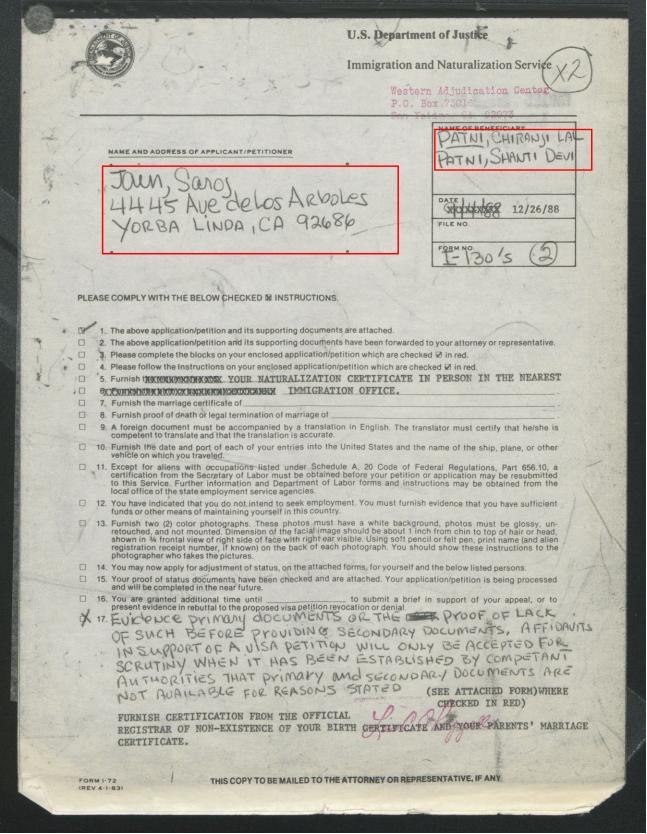 U.S. Department of Justice
Immigration and Naturalization Service
X2
Western Adjudication Center
P.O. Box
NAME OF BENEFICIARY
PATNI, CHIRANJI LAL
PATNI, SHANTI DEVI
NAME AND ADDRESS OF APPLICANT/PETITIONER
Jain, Saroj
4445 Ave de Los Arboles
YORBA LINDA, CA 92686
DATE
12/26/88
FILE NO.
FORM NO.
I-130's (2)
PLEASE COMPLY WITH THE BELOW CHECKED ☒ INSTRUCTIONS.
1. The above application/petition and its supporting documents are attached.
2. The above application/petition and its supporting documents have been forwarded to your attorney or representative.
3. Please complete the blocks on your enclosed application/petition which are checked ☑ in red.
4. Please follow the instructions on your enclosed application/petition which are checked ☑ in red.
5. Furnish YOUR NATURALIZATION CERTIFICATE IN PERSON IN THE NEAREST
IMMIGRATION OFFICE.
7. Furnish the marriage certificate of
8. Furnish proof of death or legal termination of marriage of
9. A foreign document must be accompanied by a translation in English. The translator must certify that he/she is
competent to translate and that the translation is accurate.
10. Furnish the date and port of each of your entries into the United States and the name of the ship, plane, or other
vehicle on which you traveled.
11. Except for aliens with occupations listed under Schedule A, 20 Code of Federal Regulations, Part 656.10, a
certification from the Secretary of Labor must be obtained before your petition or application may be resubmitted
to this Service. Further information and Department of Labor forms and instructions may be obtained from the
local office of the state employment service agencies.
12. You have indicated that you do not intend to seek employment. You must furnish evidence that you have sufficient
funds or other means of maintaining yourself in this country.
13. Furnish two (2) color photographs. These photos must have a white background, photos must be glossy, un-
retouched, and not mounted. Dimension of the facial image should be about 1 inch from chin to top of hair or head,
shown in ¾ frontal view of right side of face with right ear visible. Using soft pencil or felt pen, print name (and alien
registration receipt number, if known) on the back of each photograph. You should show these instructions to the
photographer who takes the pictures.
14. You may now apply for adjustment of status, on the attached forms, for yourself and the below listed persons.
15. Your proof of status documents have been checked and are attached. Your application/petition is being processed
and will be completed in the near future.
16. You are granted additional time until to submit a brief in support of your appeal, or to
present evidence in rebuttal to the proposed visa petition revocation or denial.
X 17. Evidence primary documents OR THE PROOF OF LACK
OF SUCH BEFORE PROVIDING SECONDARY DOCUMENTS, AFFIDAVITS
IN SUPPORT OF A VISA PETITION WILL ONLY BE ACCEPTED FOR
SCRUTINY WHEN IT HAS BEEN ESTABLISHED BY COMPETANT
AUTHORITIES THAT primary and secondary DOCUMENTS ARE
NOT AVAILABLE FOR REASONS STATED (SEE ATTACHED FORM)WHERE
CHECKED IN RED)
FURNISH CERTIFICATION FROM THE OFFICIAL
REGISTRAR OF NON-EXISTENCE OF YOUR BIRTH CERTIFICATE AND YOUR PARENTS' MARRIAGE
CERTIFICATE.
FORM I-72
(REV 4-1-83)
THIS COPY TO BE MAILED TO THE ATTORNEY OR REPRESENTATIVE, IF ANY